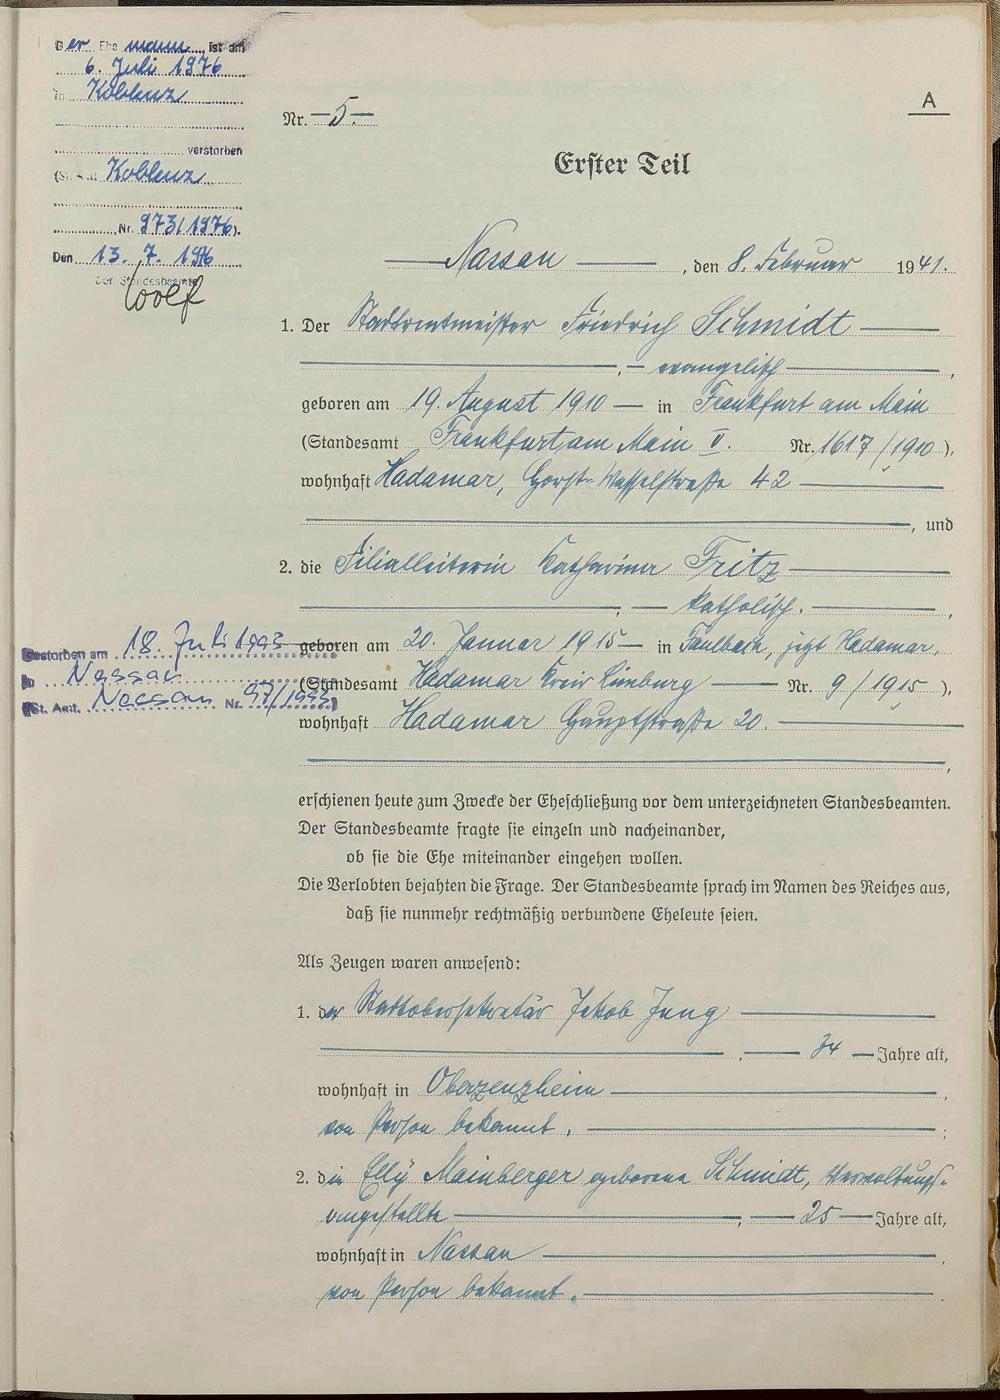 Der Ehemann ist am
6. Juli 1976
in Koblenz
verstorben
(St. Amt Koblenz
Nr. 973/1976).
Den 13. 7. 1976
Der Standesbeamte
Wolf
A
Nr. 5.
Erster Teil
Nassau, den 8. Februar 1941.
1. Der Stadtrentmeister Friedrich Schmidt
, evangelisch,
geboren am 19. August 1910 in Frankfurt am Main
(Standesamt Frankfurt am Main V. Nr. 1617/1910),
wohnhaft Hadamar, Horst-Wesselstraße 42
, und
2. die Filialleiterin Katharina Fritz
, katholisch.,
geboren am 20. Januar 1915 in Faulbach, jetzt Hadamar,
(Standesamt Hadamar Kreis Limburg Nr. 9/1915),
wohnhaft Hadamar Hauptstraße 20.
,
Gestorben am 18. Juli 1993
in Nassau
(St. Amt. Nassau Nr. 47/1993)
erschienen heute zum Zwecke der Eheschließung vor dem unterzeichneten Standesbeamten.
Der Standesbeamte fragte sie einzeln und nacheinander,
ob sie die Ehe miteinander eingehen wollen.
Die Verlobten bejahten die Frage. Der Standesbeamte sprach im Namen des Reiches aus,
daß sie nunmehr rechtmäßig verbundene Eheleute seien.
Als Zeugen waren anwesend:
1. der Stadtobersekretär Jakob Jung
, 34 Jahre alt,
wohnhaft in Oberzeuzheim,
von Person bekannt.;
2. die Elly Mainberger geborene Schmidt, Verwaltungs-
angestellte, 25 Jahre alt,
wohnhaft in Nassau.
von Person bekannt.